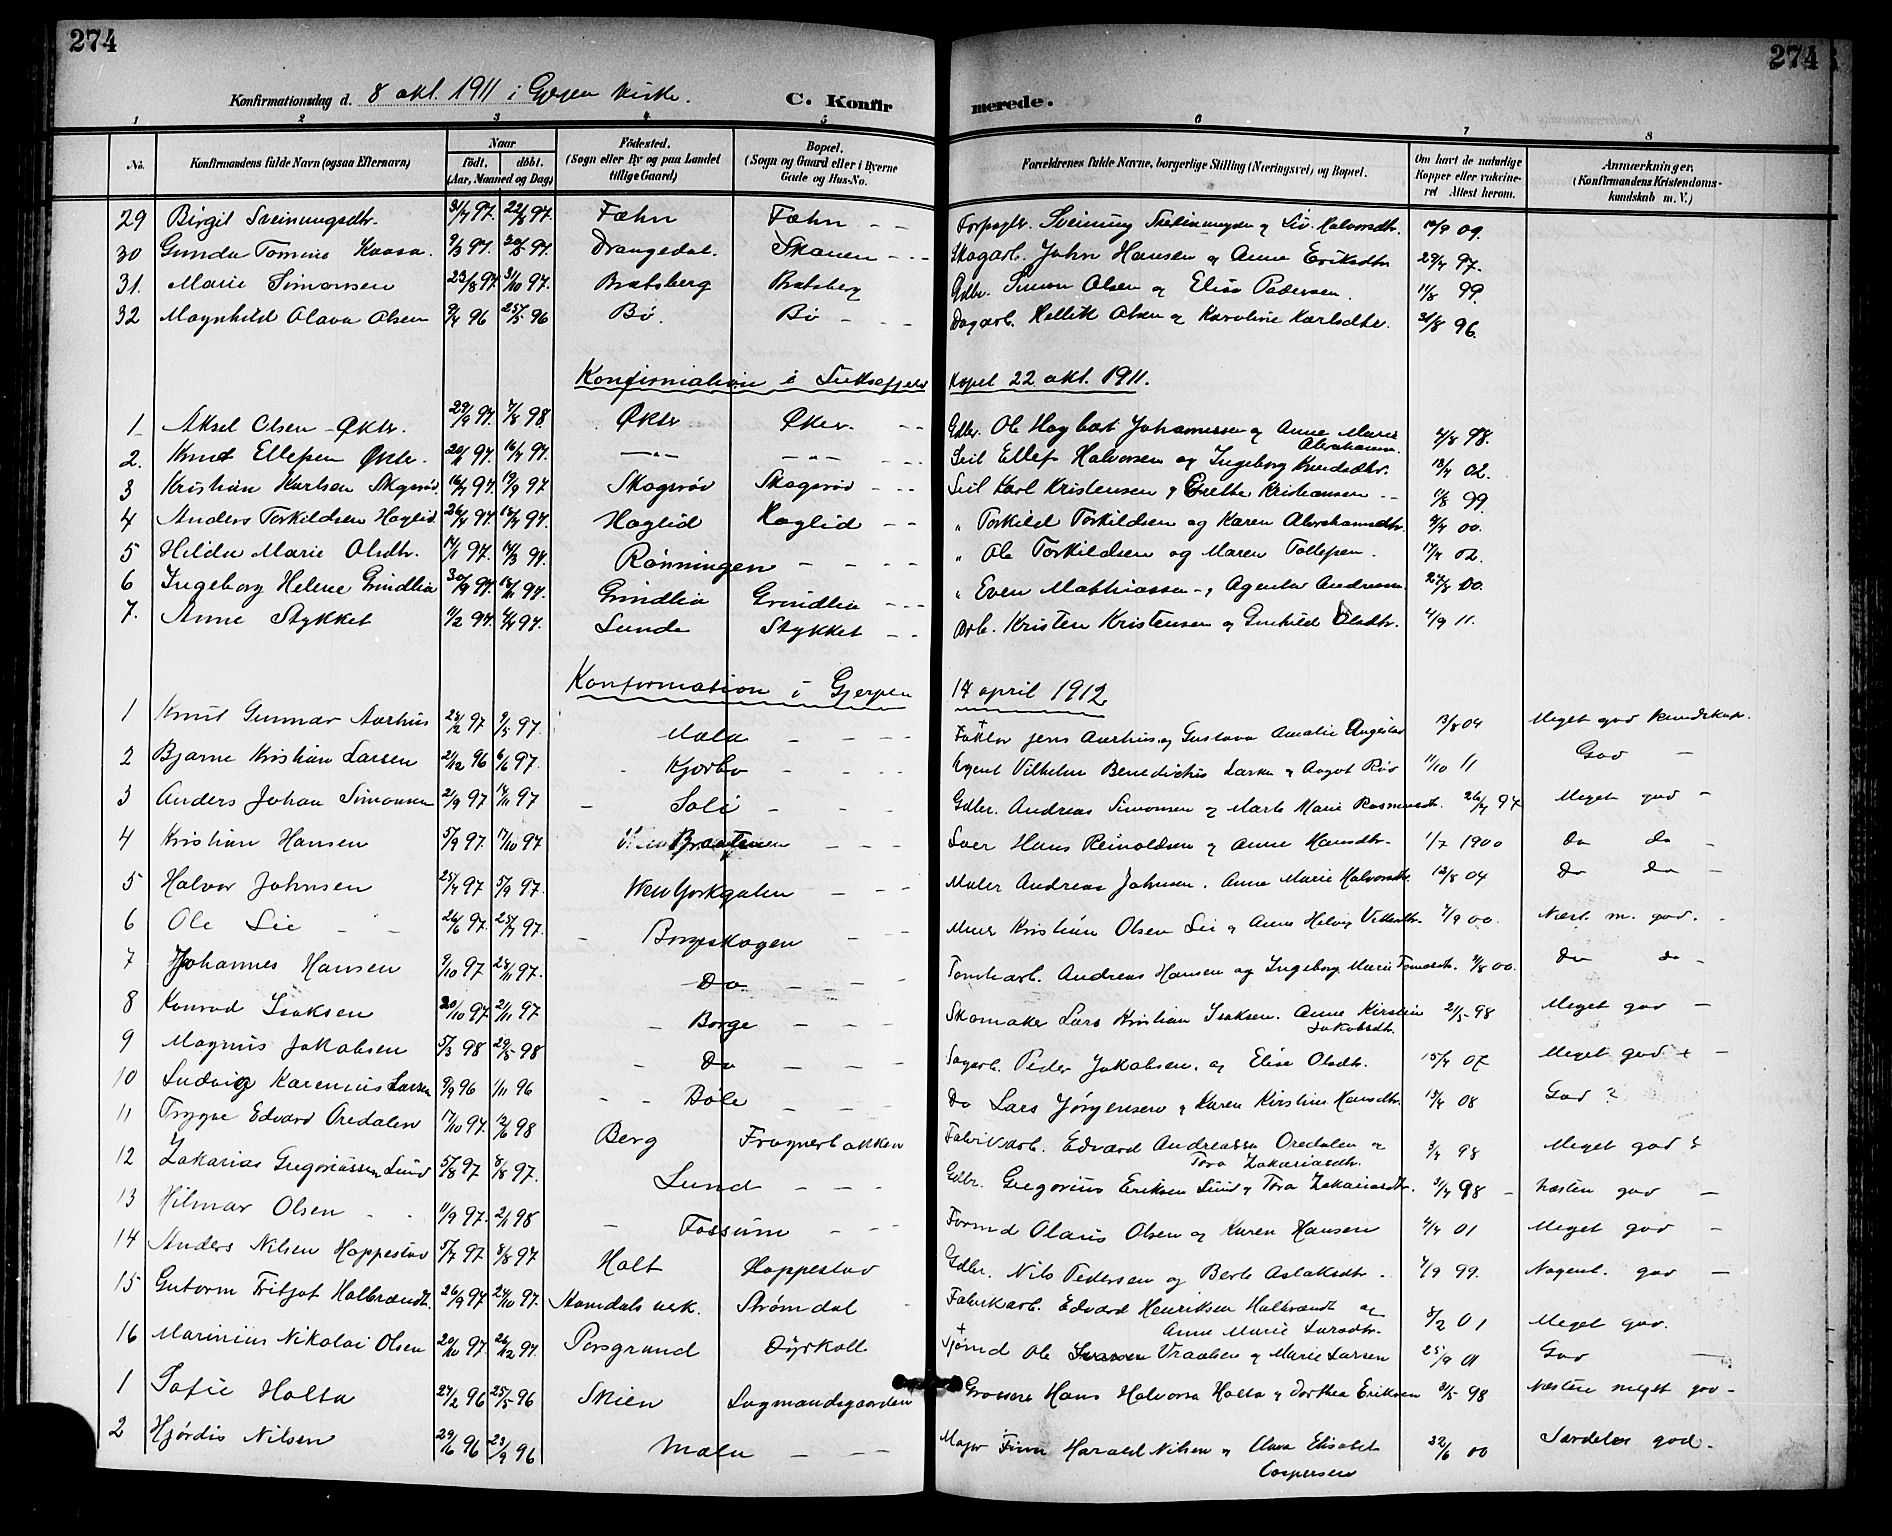 274
274
Konfirmationsdag d. 8 okt. 1911 i Gjerpen kirke.
C. Konfirmerede.
1 2 3 4 5 6 7 8
No.
Konfirmandens fulde Navn (ogsaa Efternavn)
Naar
födt. döbt.
(Aar, Maaned og Dag)
Födested.
(Sogn eller By og paa Landet
tillige Gaard)
Bopæl.
(Sogn og Gaard eller i Byerne
Gade og Hus-No.
Forældrenes fulde Navne, borgerlige Stilling (Næringsvei) og Bopæl.
Om havt de naturlige
Kopper eller vakcine-
ret Attest herom.
Anmærkninger.
(Konfirmandens Kristendoms-
kundskab m. V.)
29 Birgit Sveinungsdtr. 3/7 97. 22/8 97. Fæhn Fæhn - - Sveinung Sveinungsen og Liv Halvorsdtr. 09.
30 Gunda Tomine Kaasa. 9/3 97. 20/5 97. Drangedal. Skauen - - Skogarb. John Hansen og Anne Eriksdtr 29/7 97.
31. Marie Simonsen 23/8 97 31/10 97. Bratsberg Bratsberg Gdbr. Simon Olsen og Elise Pedersen. 11/8 99.
32 Magnhild Olava Olsen 9/4 96 25/5 96 Bø. Bø - - - Dagarb. Hellik Olsen og Karoline Karlsdtr. 31/8 96.
Konfirmation i Luksefjeld Kapel 22 okt. 1911.
1 Aksel Olsen - Økter. 29/9 97. 7/8 98 Økter Økter - - Gdbr. Ole Hagbart Johannessen og Anne Marie Abrahamsen 2/8 98.
2. Knut Ellefsen Økter. 20/ 97. 16/ 97. - " - - " - - - Seil Ellef Halvorsen og Ingeborg Knudsdtr. 13/7 02.
3 Kristian Karlsen Skogsrød 16/7 97. 19/9 97 Skogsrød Skogsrød - - - Seil Karl Kristensen og Grethe Kristiansen - - 1/8 99.
4 Anders Torkildsen Haglid. 26/ 97. 97. Haglid Haglid - - " Torkild Torkildsen og Karen Abrahamsdtr. 9/7 00.
5 Hilda Marie Olsdtr. 14/1 97. 14/3 97. Rønningen - - - - " Ole Torkildsen og Maren Tollefsen. 17/7 02.
6 Ingeborg Helene Grindlia 30/9 97. 97. Grindlia Grindlia - - - " Even Mathiassen - Andreassen. 27/8 00.
7. Anne Stykket 11/2 97. 97. Lunde Stykket - - Arb. Kristen Kristensen og Gunhild Olsdtr. 4/9 11.
Konfirmation i Gjerpen 14 april 1912
1 Knut Gunnar Aarhus 23/2 97 9/5 97. Mæla - - - - Faktor Jens Aarhus og Gustava Amalie 13/8 04 Meget god kundskap.
2 Bjarne Kristian Larsen 21/12 96 6/6 97. - Kjørbo - - - Agent Vilhelm Benedictus Larsen og Aagot Rød 11/10 11 God -
3 Anders Johan Simonsen 21/9 97 14/11 97 - Soli - - - Gdbr. Andreas Simonsen og Marte Marie Rasmusdt. 26/7 97 Meget god -
4 Kristian Hansen 5/9 97. 17/10 97 Braaten - - - Hans Reinoldsen og Anne Hansdtr. 1/7 1900 do do -
5 Halvor Johnsen 25/7 97 5/9 97. NewYorkgaten - - - Maler Andreas Johnsen. Anne Marie Halvorsdtr. 13/8 04 do do -
6 Ole Lie - - 26/6 97. 25/7 97. - Borgeskogen - - - Murer Kristian Olsen Lie og Anne Helvig 7/9 00. Næst. m. god. -
7 Johannes Hansen 9/10 97 28/11 97. - Do - - - Tomtearb. Andreas Hansen og Ingeborg Marie 7/8 00. do do -
8 Konrad Isaksen 20/10 97 21/11 97 - Borge - - - Skomaker Lars Kristian Isaksen. Anne Kirstin Jakobsdt. 21/5 98 Meget god -
9 Magnus Jakobsen 5/3 98 29/5 98 - Do - - - Sagarb. Peder Jakobsen. og Elise Olsdtr. 15/7 07 Meget god + -
10 Ludvig Karenius Larsen 9/9 96 1/11 96 - - Bøle - - - Do Lars Jørgensen og Karen Kirstine Hansdtr. 13/7 08 God ?
11 Trygve Edvard Oredalen 17/10 97. 12/6 98 Berg Frognerbakken Fabrikarb. Edvard Andreassen Oredalen og Tora Zakariasdtr. 3/7 98 Meget god ?
12 Zakarias Gregoriussen Lund 5/8 97 8/8 97. Lund - - - Gdbr. Gregorius Eriksen Lund og Tora Zakariasdtr. 3/7 98 - næsten god -
13 Hilmar Olsen - - 11/9 97. 2/1 98 - Fossum - - - Formd Olaus Olsen og Karen Hansen 4/7 01 Meget god -
14 Anders Nilsen Hoppestad 5/7 97 8/8 97 Holt Hoppestad Gdbr. Nils Pedersen og Berte Aslaksdtr - 7/9 99. Nogenl. god -
15 Gutorm Fritjof Halbrændt. 26/9 97 24/10 97. Stømdals verk. Strømdal Fabrikarb. Edvard Henriksen Halbrændt og Anne Marie Larsdtr. 8/2 01 Meget god.
16 Marinius Nikolai Olsen 20/10 97. 26/12 97. Porsgrund Dyrkoll Sjømd Ole Vraalsen og Marie Larsen 25/9 01 God -
1 Sofie Holta 27/2 96 25/5 96 Skien Lagmandsgaarden Grosserer Hans Halvorsen Holta og Dorthea Eriksen 31/5 98 Næsten meget god -
2 Hjørdis Nilsen 29/6 96 23/9 96 Mæla - - - Major Finn Harald Nilsen og Clara Elisabet Caspersen 22/6 00 Særdeles god -